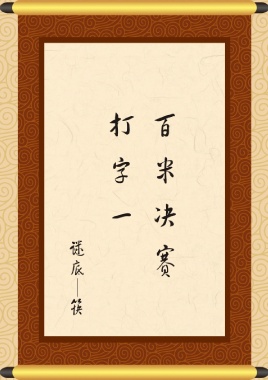 百米决赛
打字一
谜底——筷